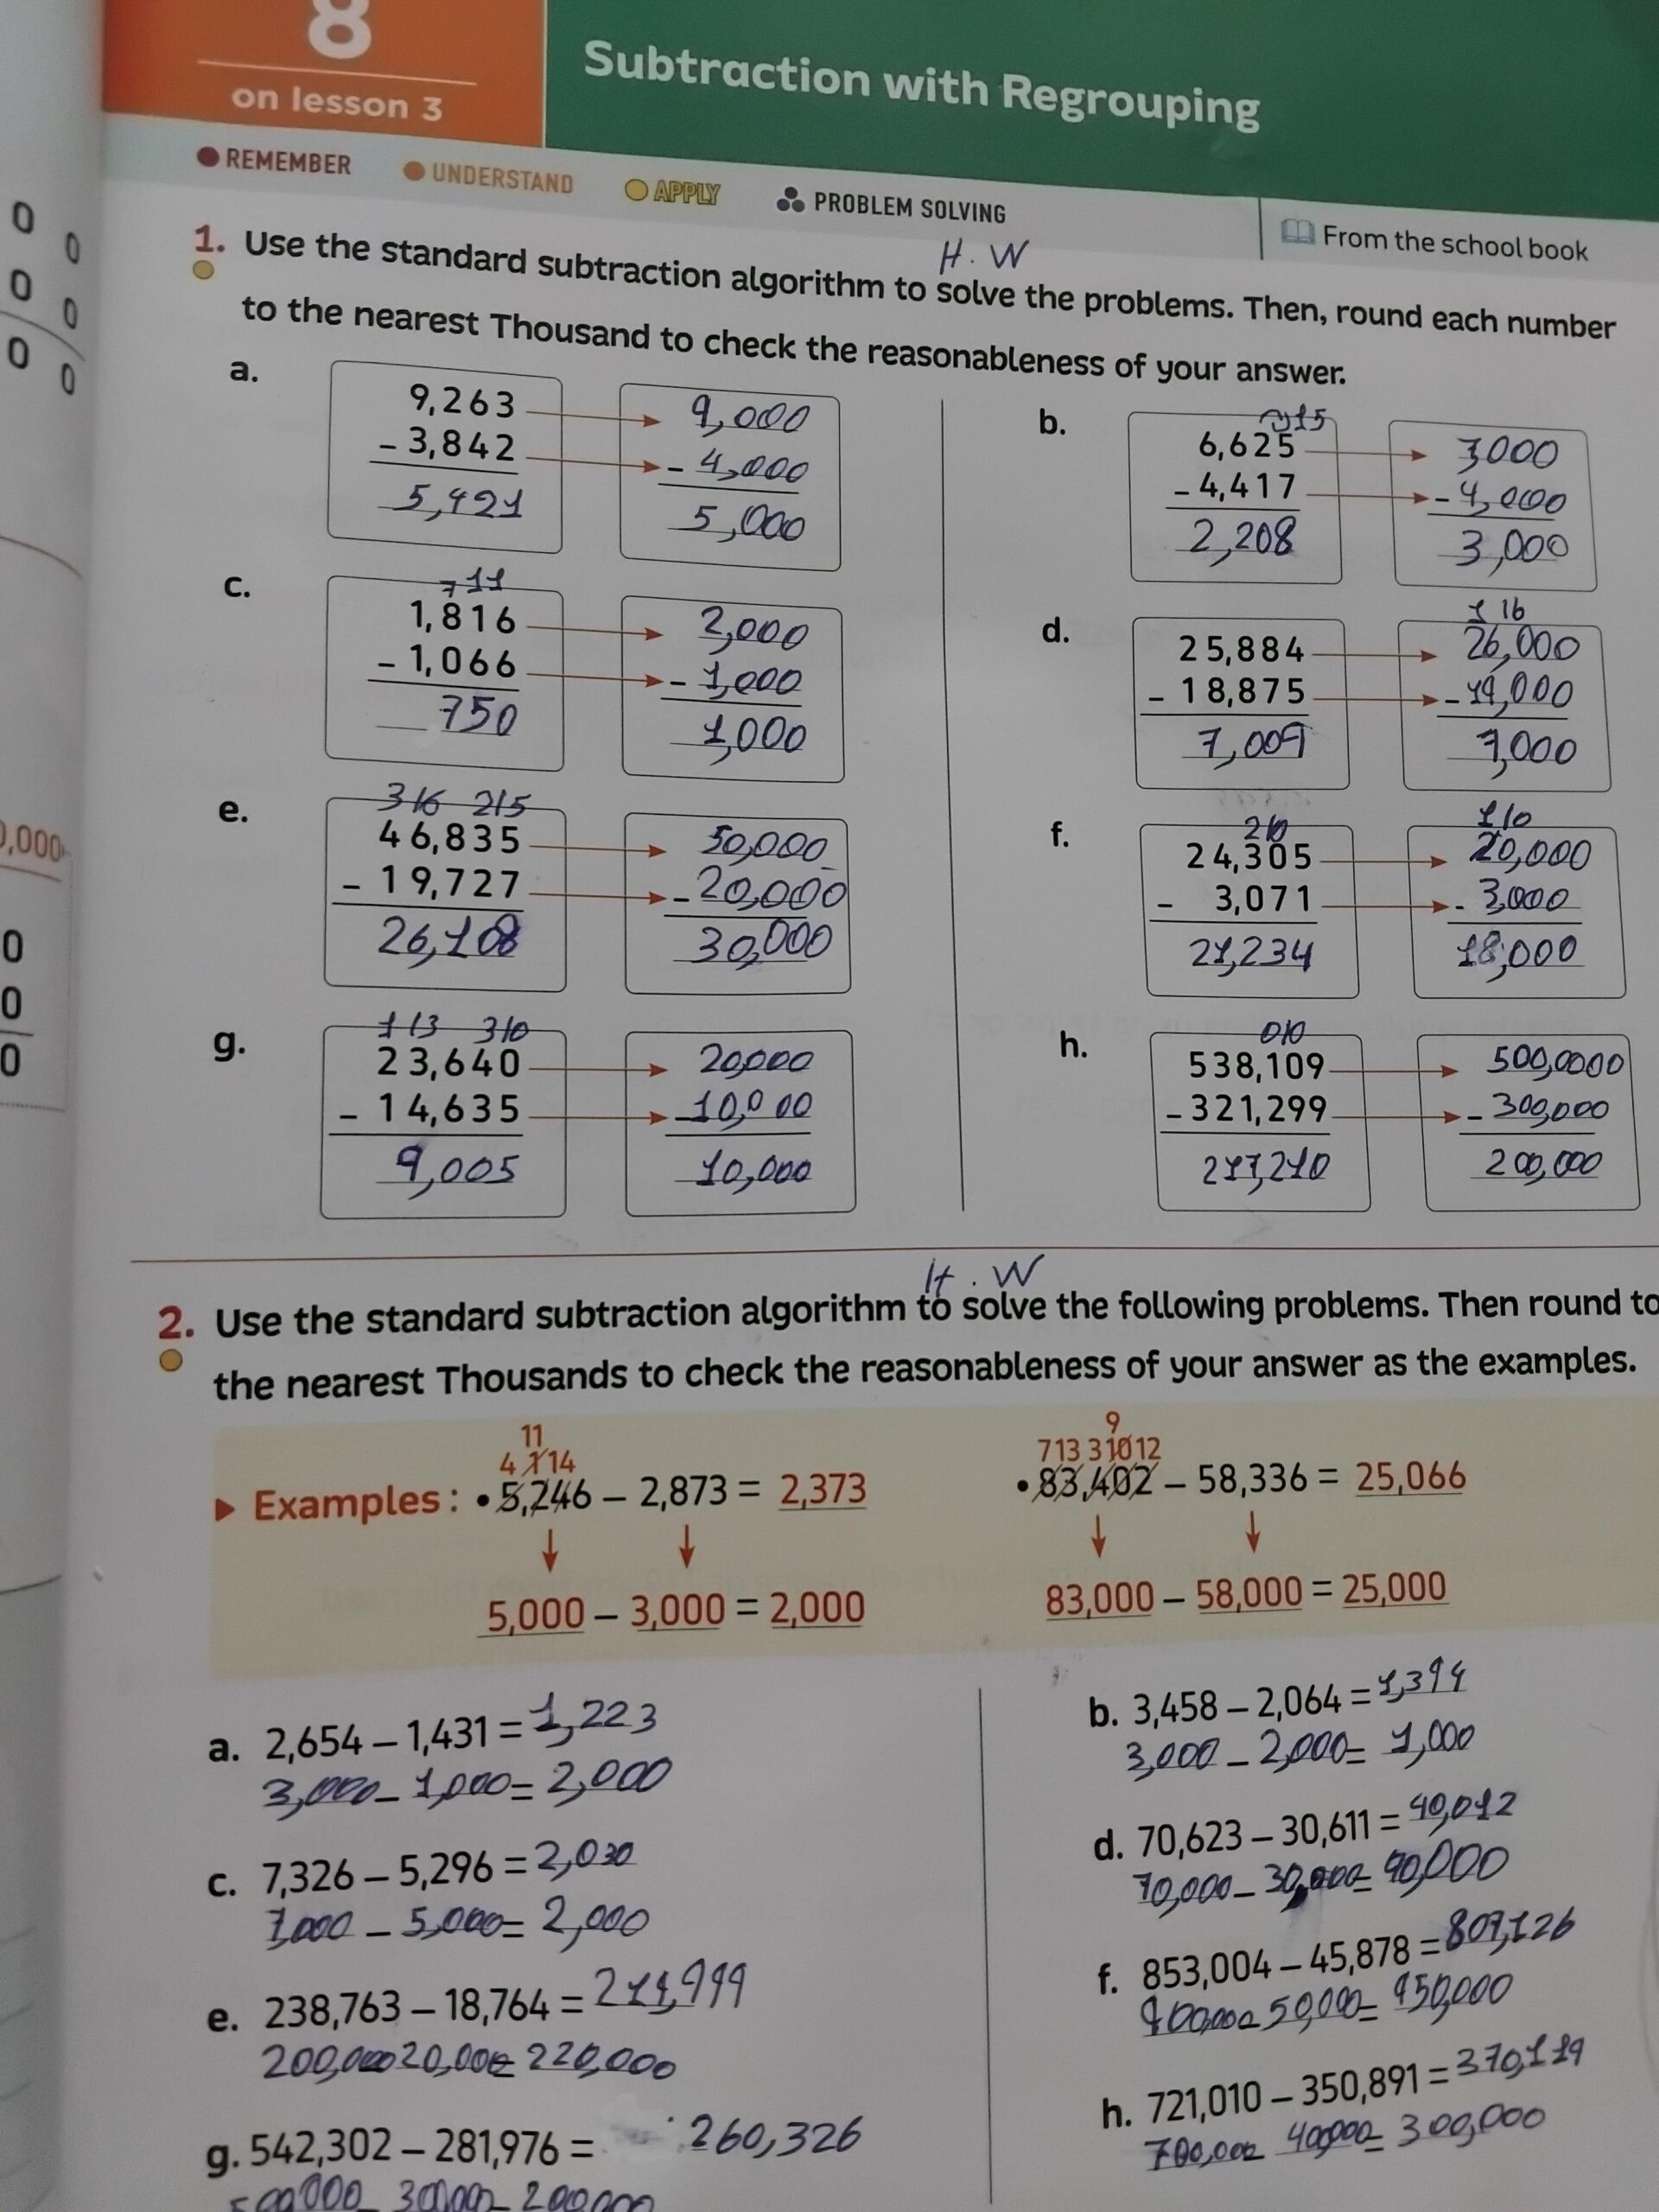 8
on lesson 3
Subtraction with Regrouping
REMEMBER UNDERSTAND APPLY PROBLEM SOLVING
From the school book
H.W
1. Use the standard subtraction algorithm to solve the problems. Then, round each number
to the nearest Thousand to check the reasonableness of your answer.
a.
9,263 9,000
- 3,842 - 4,000
5,421 5,000
b.
15
6,625 7,000
- 4,417 - 4,000
2,208 3,000
c.
7 11
1,816 2,000
- 1,066 - 1,000
750 1,000
d.
1 16
25,884 26,000
- 18,875 - 19,000
7,009 7,000
e.
3 16 2 15
46,835 50,000
- 19,727 - 20,000
26,108 30,000
f.
2 10 1 10
24,305 20,000
- 3,071 - 3,000
21,234 18,000
g.
1 13 3 10
23,640 20,000
- 14,635 - 10,000
9,005 10,000
h.
0 10
538,109 500,0000
- 321,299 - 300,000
217,210 200,000
H.W
2. Use the standard subtraction algorithm to solve the following problems. Then round to
the nearest Thousands to check the reasonableness of your answer as the examples.
11
4 1 14
Examples : • 5,246 – 2,873 = 2,373
5,000 – 3,000 = 2,000
9
7 13 3 10 12
• 83,402 – 58,336 = 25,066
83,000 – 58,000 = 25,000
a. 2,654 – 1,431 = 1,223
3,000 – 1,000 = 2,000
b. 3,458 – 2,064 = 1,394
3,000 – 2,000 = 1,000
c. 7,326 – 5,296 = 2,030
7,000 – 5,000 = 2,000
d. 70,623 – 30,611 = 40,012
70,000 – 30,000 = 40,000
e. 238,763 – 18,764 =
200,000 20,000 = 220,000
f. 853,004 – 45,878 = 807,126
900,000 – 50,000 = 950,000
g. 542,302 – 281,976 = 260,326
500,000 – 300,000 – 200,000
h. 721,010 – 350,891 = 370,119
700,000 400,000 = 300,000
0,000
0
0
0
0
0
0
0
0
0